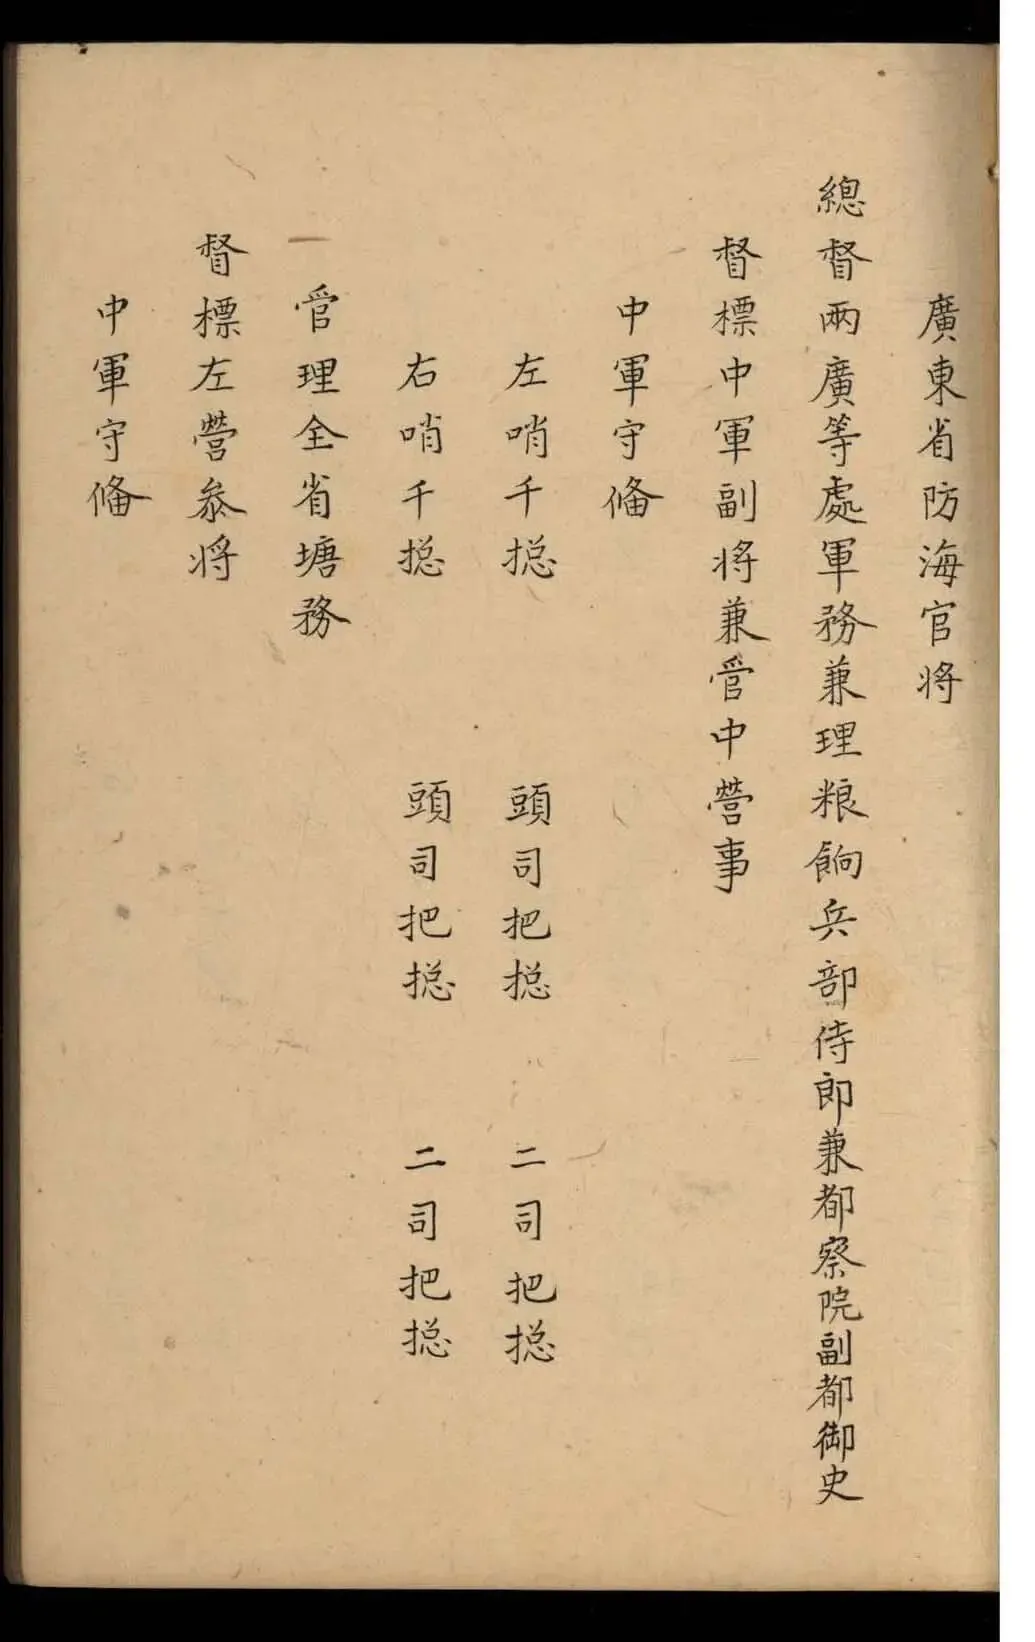 廣東省防海官将
總督兩廣等處軍務兼理粮餉兵部侍郎兼都察院副都御史
督標中軍副将兼管中營事
中軍守俻
左哨千捴 頭司把捴 二司把捴
右哨千捴 頭司把捴 二司把捴
一管理全省塘務
督標左營叅将
中軍守俻